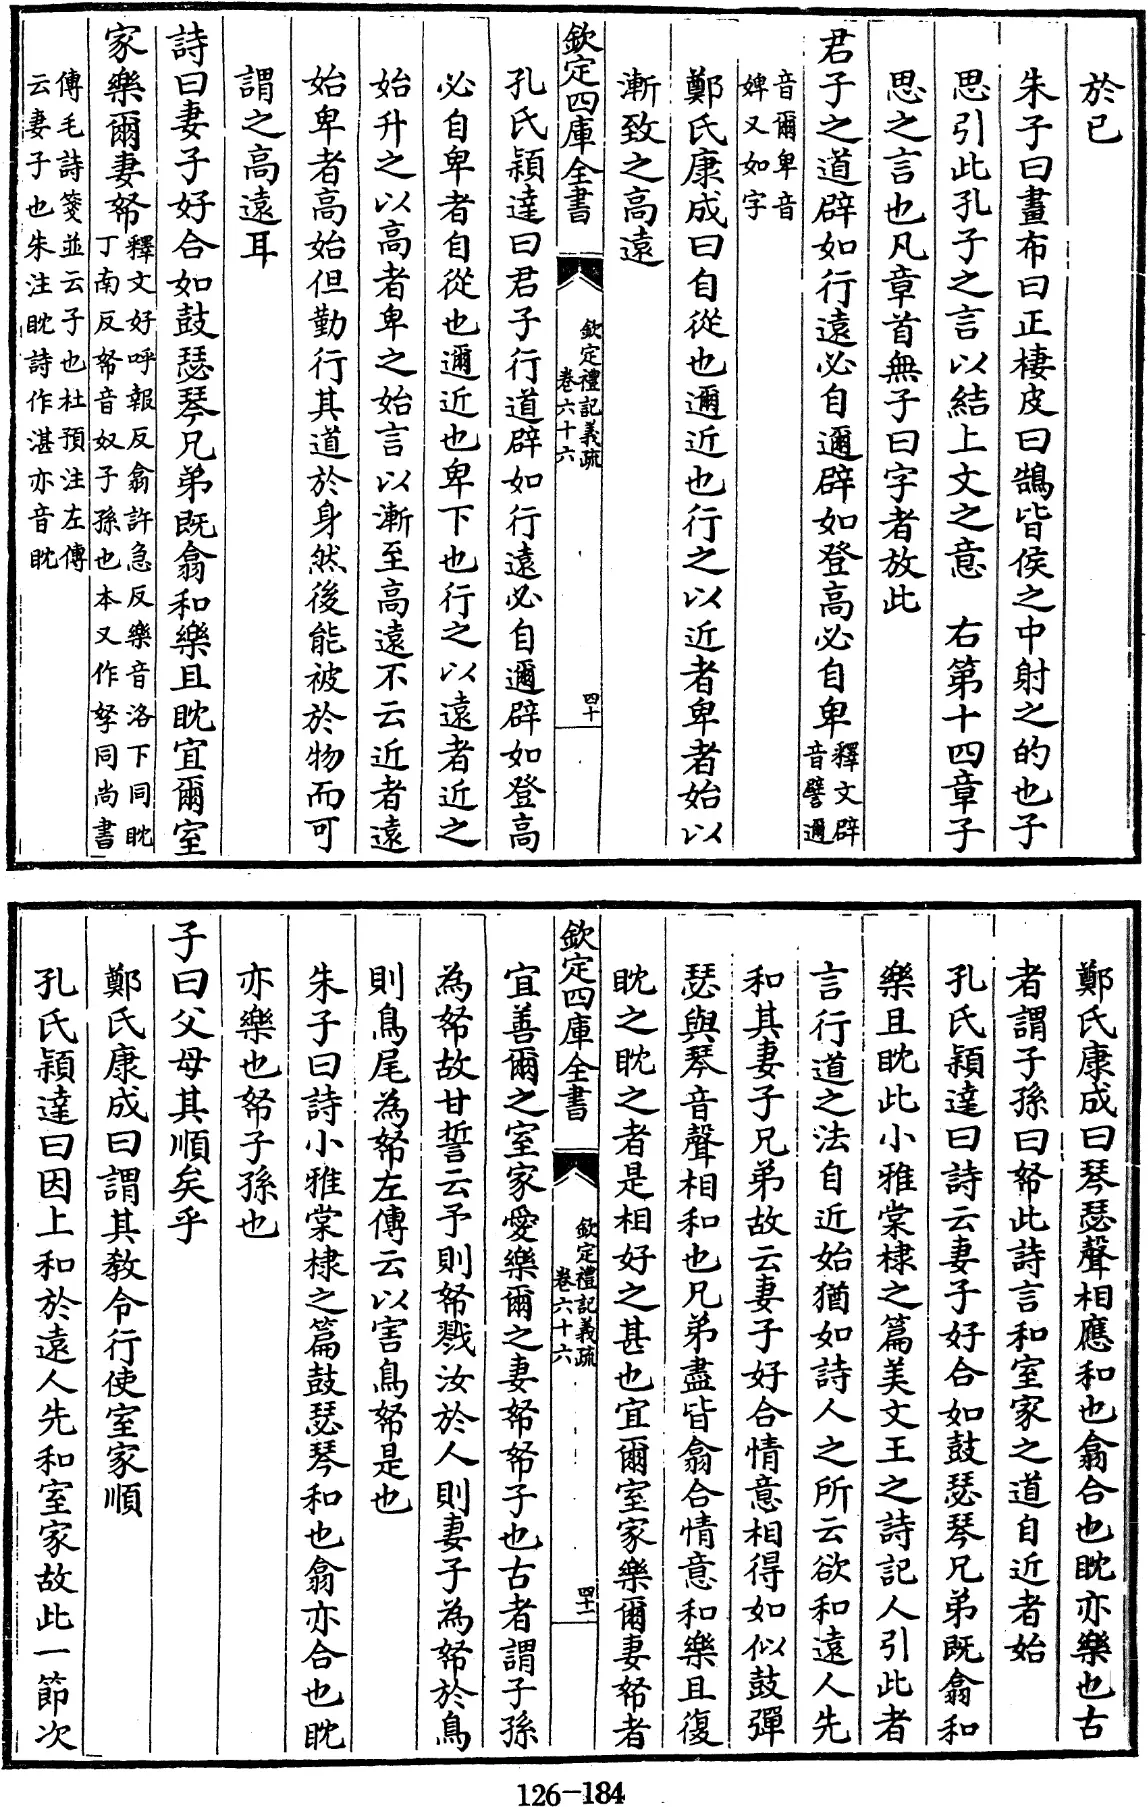 於已
朱子曰畫布曰正棲皮曰鵠皆侯之中射之的也子
思引此孔子之言以結上文之意　右第十四章子
思之言也凡章首無子曰字者放此
君子之道辟如行遠必自邇辟如登高必自卑釋文辟
音譬邇
音爾卑音
婢又如字
鄭氏康成曰自從也邇近也行之以近者卑者始以
漸致之高遠
欽定四庫全書
欽定禮記義疏
卷六十六
四十
孔氏穎達曰君子行道辟如行遠必自邇辟如登高
必自卑者自從也邇近也卑下也行之以遠者近之
始升之以高者卑之始言以漸至高遠不云近者遠
始卑者高始但勤行其道於身然後能被於物而可
謂之高遠耳
詩曰妻子好合如鼓瑟琴兄弟既翕和樂且耽宜爾室
家樂爾妻帑釋文好呼報反翕許急反樂音洛下同耽
丁南反帑音奴子孫也本又作孥同尚書
傳毛詩箋並云子也杜預注左傳
云妻子也朱注耽詩作湛亦音耽
鄭氏康成曰琴瑟聲相應和也翕合也耽亦樂也古
者謂子孫曰帑此詩言和室家之道自近者始
孔氏穎達曰詩云妻子好合如鼓瑟琴兄弟既翕和
樂且耽此小雅棠棣之篇美文王之詩記人引此者
言行道之法自近始猶如詩人之所云欲和遠人先
和其妻子兄弟故云妻子好合情意相得如似鼓彈
瑟與琴音聲相和也兄弟盡皆翕合情意和樂且復
耽之耽之者是相好之甚也宜爾室家樂爾妻帑者
欽定四庫全書
欽定禮記義疏
卷六十六
四十一
宜善爾之室家愛樂爾之妻帑帑子也古者謂子孫
為帑故甘誓云予則帑戮汝於人則妻子為帑於鳥
則鳥尾為帑左傳云以害鳥帑是也
朱子曰詩小雅棠棣之篇鼓瑟琴和也翕亦合也耽
亦樂也帑子孫也
子曰父母其順矣乎
鄭氏康成曰謂其敎令行使室家順
孔氏穎達曰因上和於遠人先和室家故此一節次
126-184